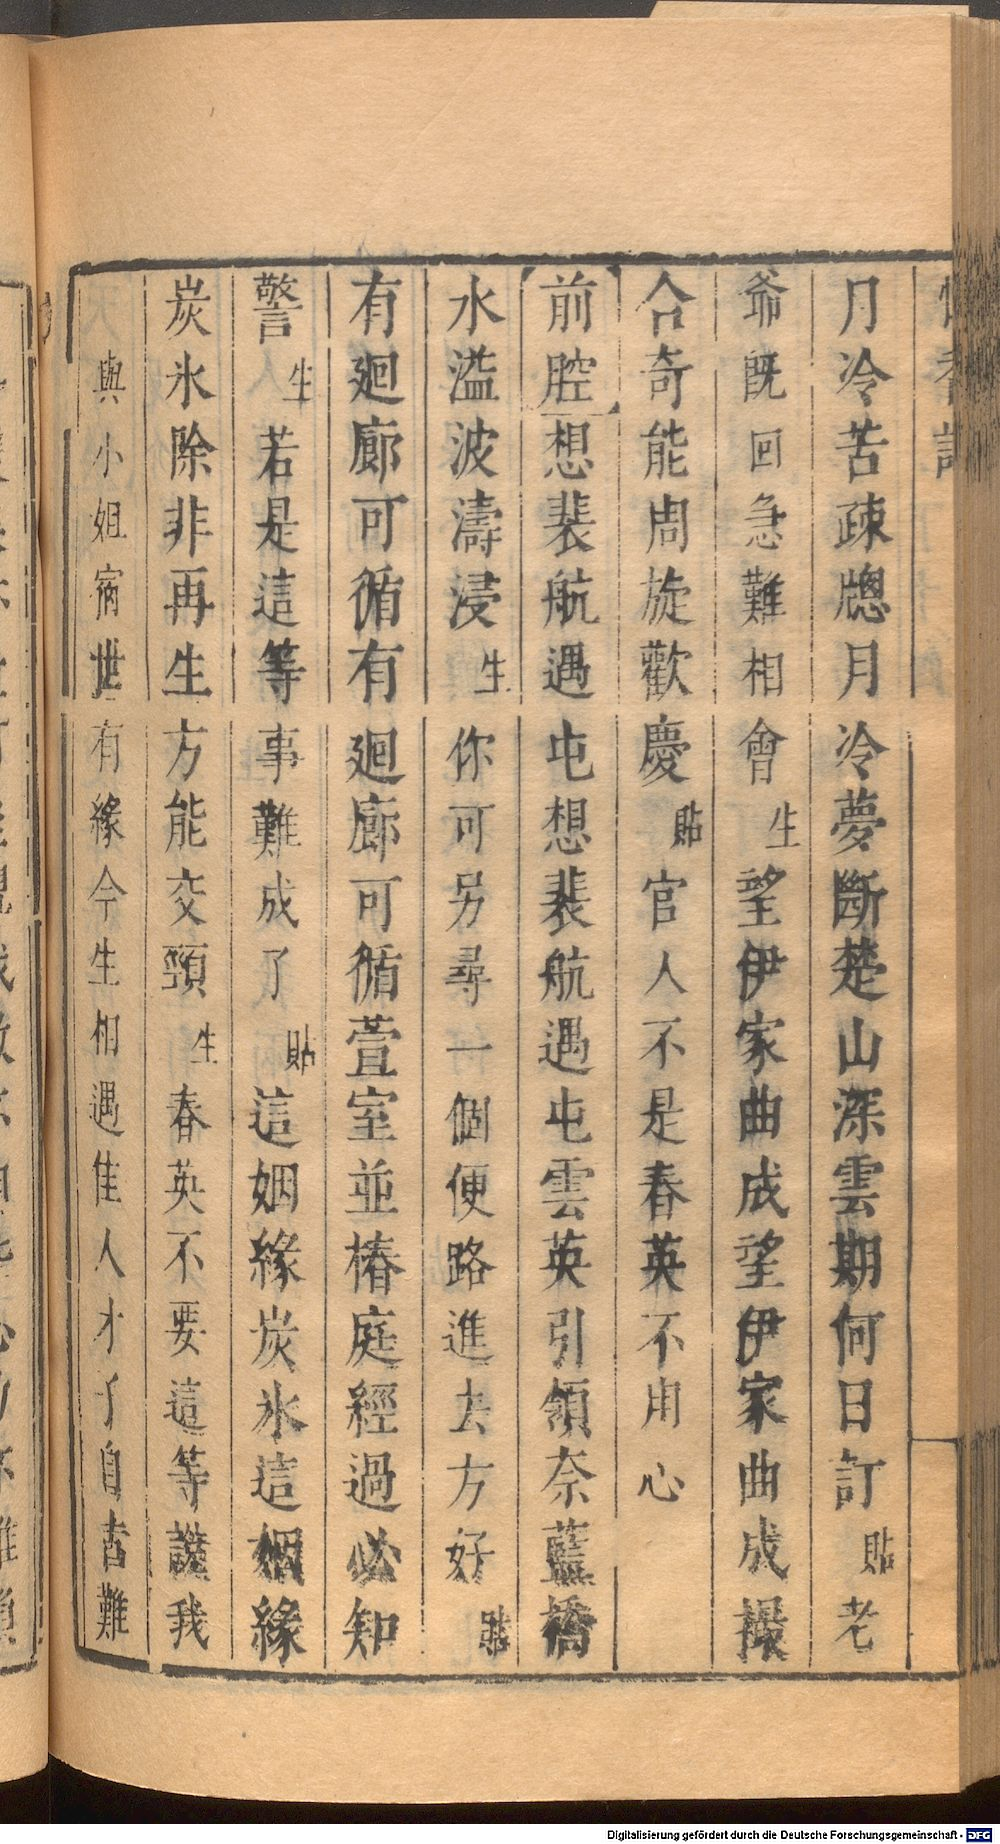 月冷苦疎牕月冷夢斷楚山深雲期何日訂貼老
爺旣回急難相會生望伊家曲成望伊家曲成撮
合奇能周旋歡慶貼官人不是春英不用心
前腔想裴航遇屯想裴航遇屯雲英引領奈藍橋
水溢波濤浸生你可另尋一個便路進去方好貼
有廻廊可循有廻廊可循萱室並椿庭經過必知
警生若是這等事難成了貼這姻緣炭氷這姻緣
炭氷除非再生方能交頸生春英不要這等說我
與小姐宿世有緣今生相遇佳人才子自古難
Digitalisierung gefördert durch die Deutsche Forschungsgemeinschaft - DFG